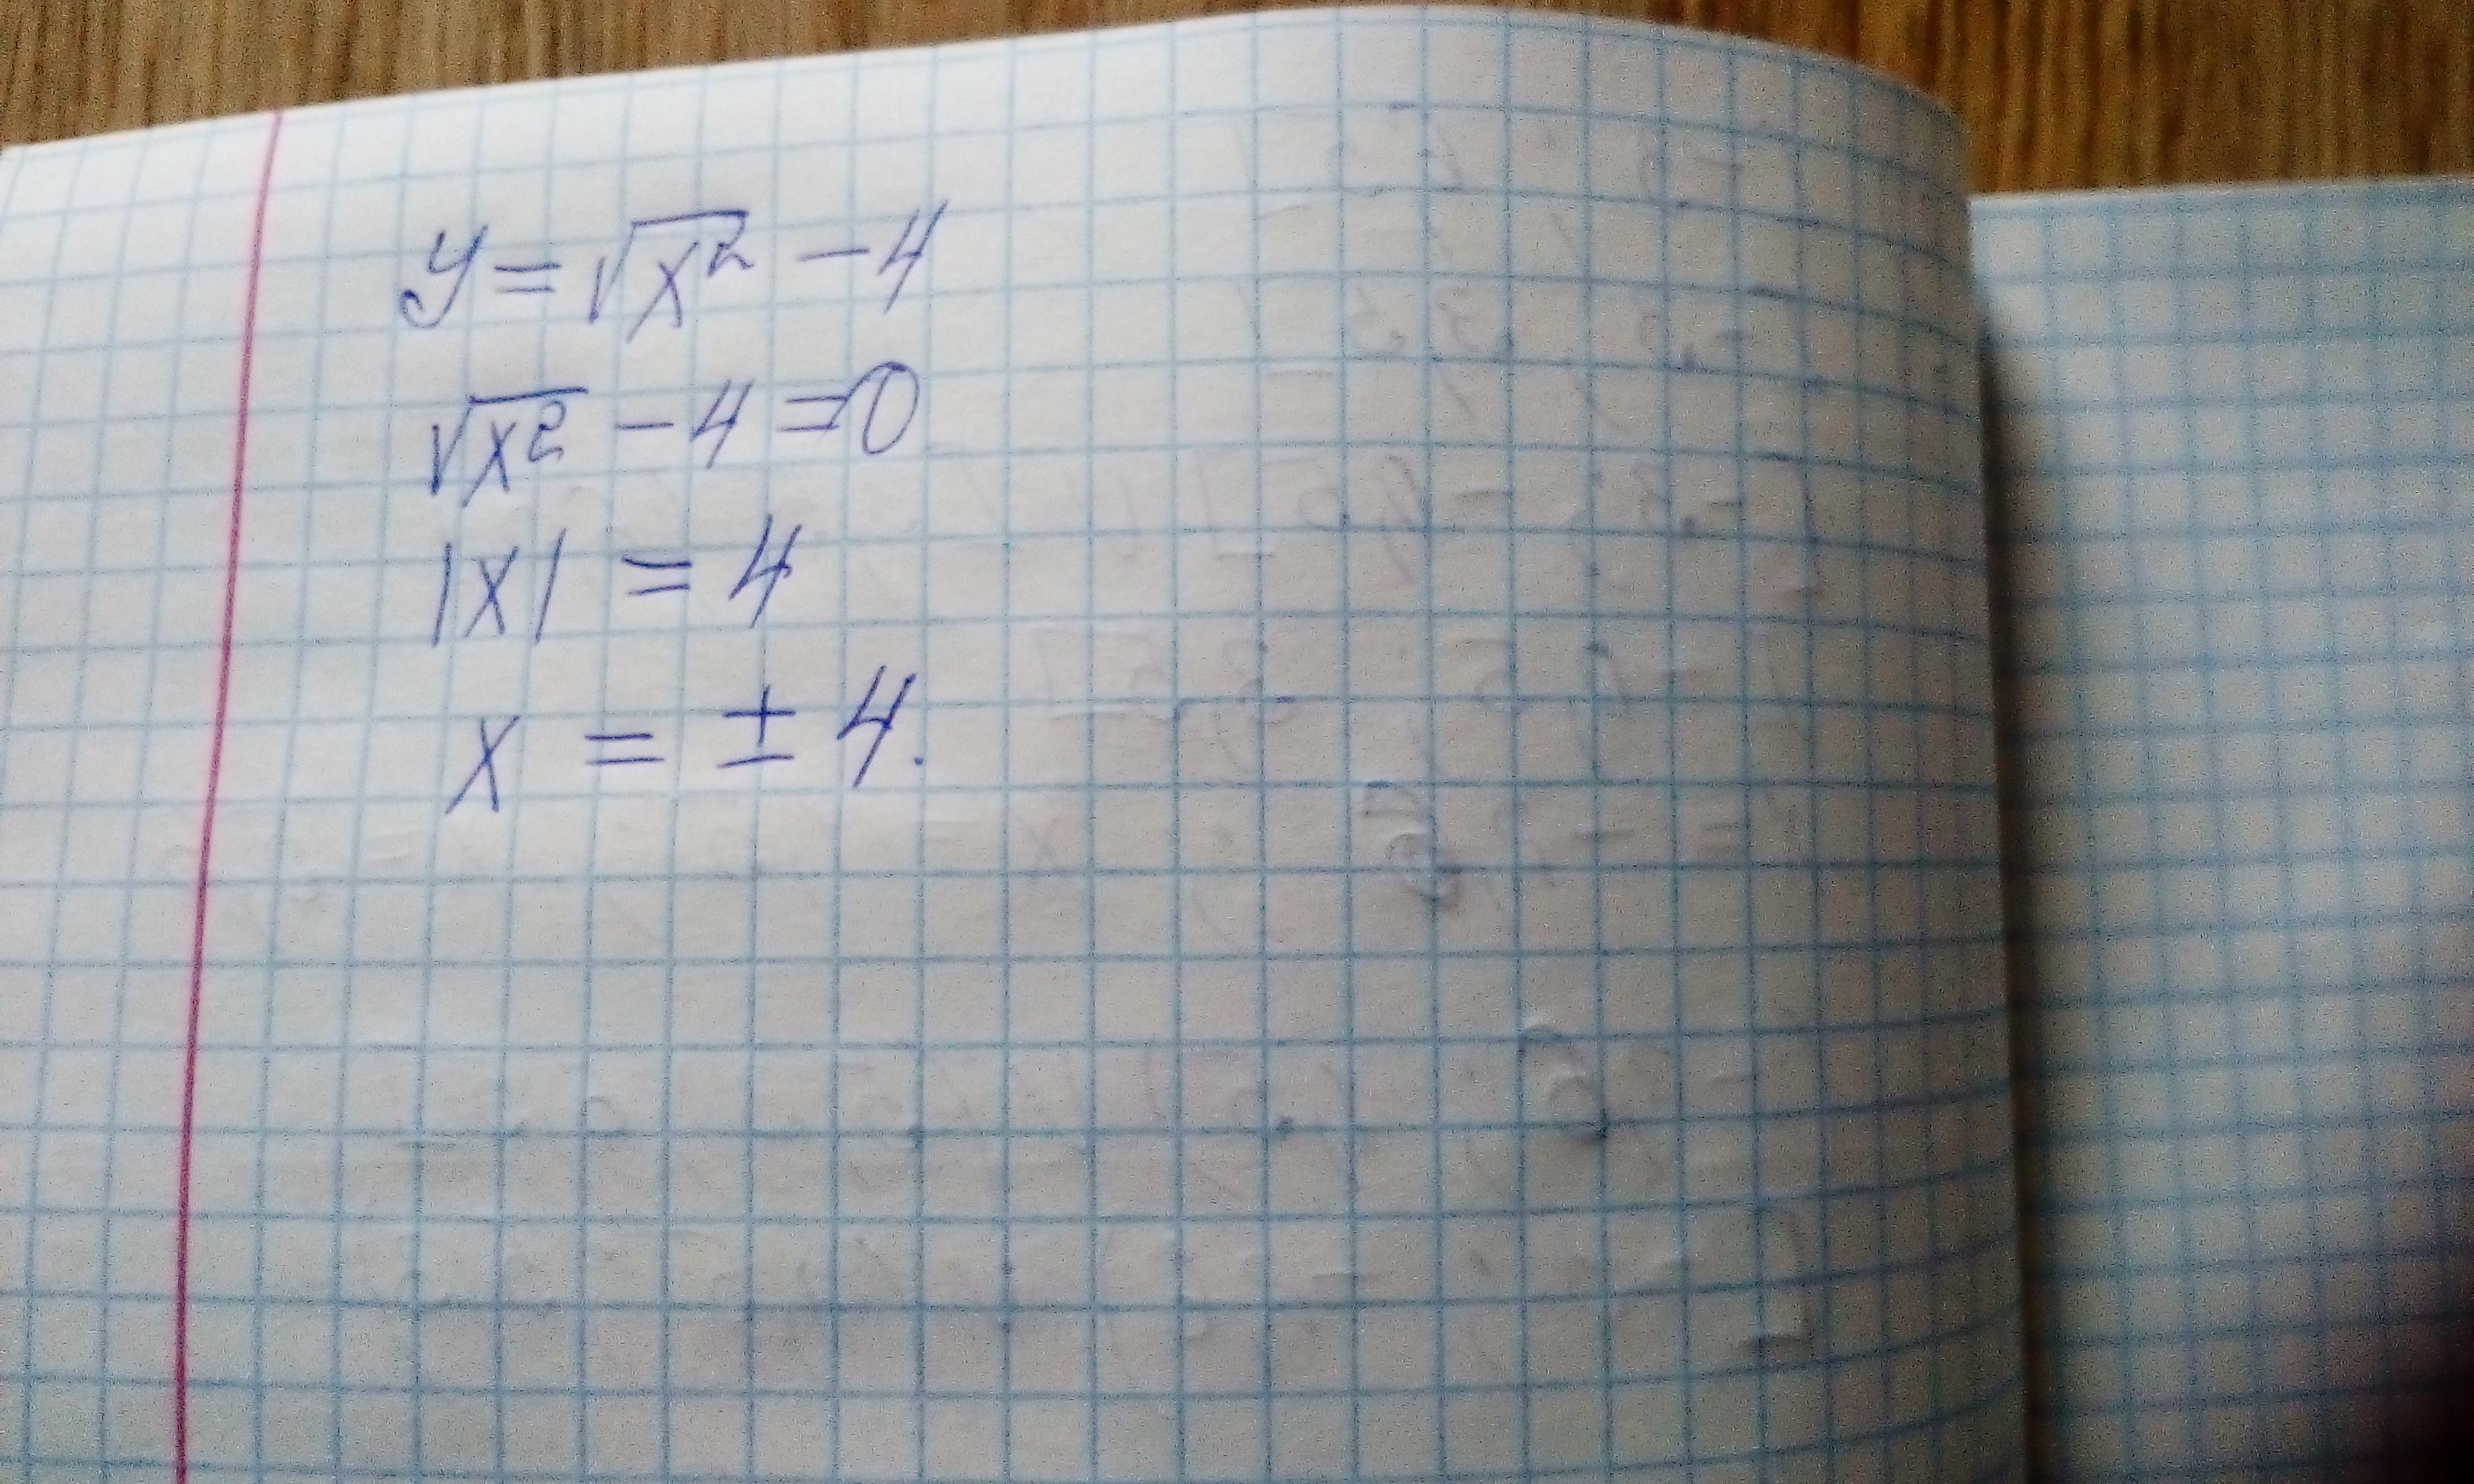 y = √x² - 4
√x² - 4 = 0
|x| = 4
x = ± 4.